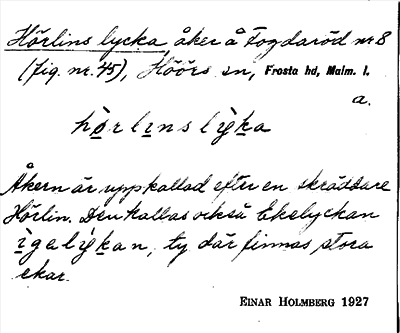 Hörlins lycka, åker å Fogdaröd nr 8
(fig. nr. 45), Höörs sn, Frosta hd, Malm. l.
a.
hò̤rlı̠nslỳk̠a
Åkern är uppkallad efter en skräddare
Hörlin. Den kallas också Ekelyckan
ì̠gəlỳk̠an, ty där finnas stora
ekar.
EINAR HOLMBERG 1927